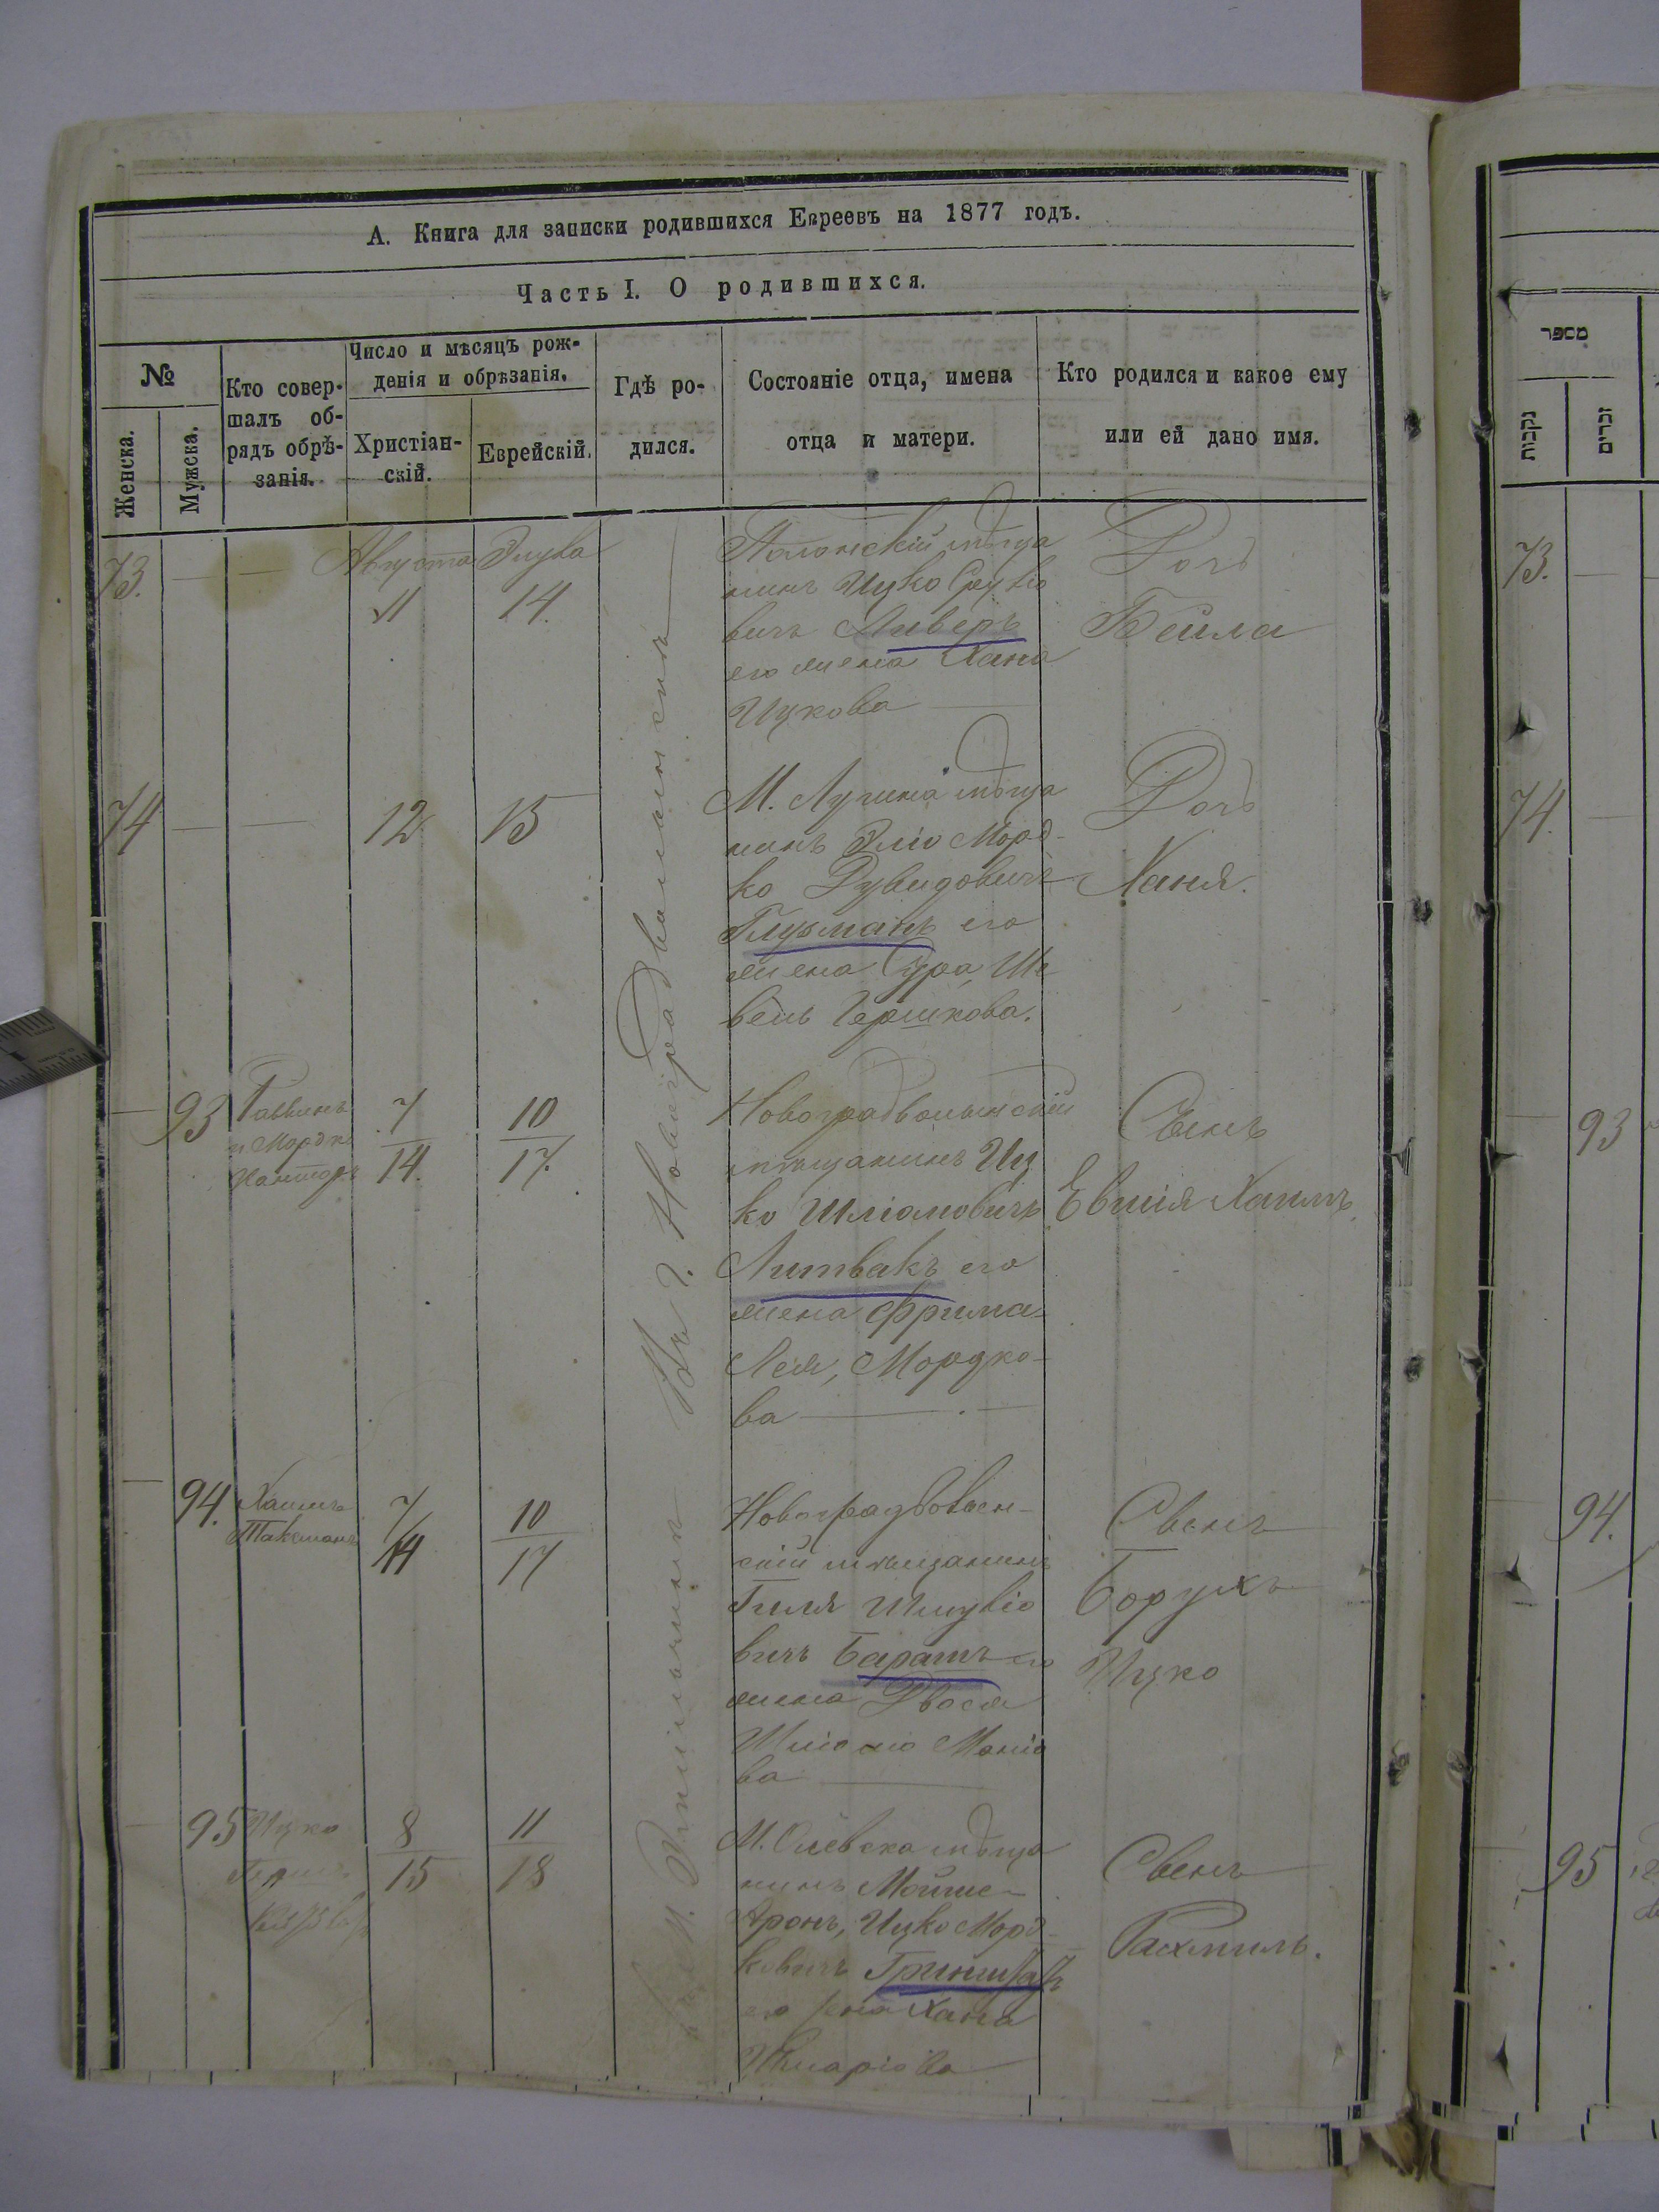 А. Книга для записки родившихся Евреевъ на 1877 годъ.
Часть I. О родившихся.
№
Женска.
Мужска.
Кто совер-
шалъ об-
рядъ обрѣ-
занія.
Число и мѣсяцъ рож-
денія и обрѣзанія.
Христіан-
скій.
Еврейскій.
Гдѣ ро-
дился.
Состояніе отца, имена
отца и матери.
Кто родился и какое ему
или ей дано имя.
Въ г. Новоградволынскѣ
73.
Августа
11
Элула
14.
Полонскій мѣща
нинъ Ицко
вичъ Ливеръ
его жена Хана
Ицкова
Дочь
Бейла
74
12.
15
М. Лугина мѣща
нинъ Эліо Морд-
ко Дувидовичъ
Глузманъ его
жена Сура, Ше
Гершкова.
Дочь
Ханя.
93
Раввинъ
и Мордко
Канторъ
7
14.
10
17.
Новоградволынскій
мѣщанинъ Иц
ко Шліомовичъ
Литвакъ его
жена Фрима-
Лея, Мордко-
ва
Сынъ
Евшія Хаимъ
94.
Хаимъ
Таксманъ
7
14
10
17
Новоградволын-
скій мѣщанинъ
Гиля Шмуліо
вичъ Баратъ его
жена Двося
ва
Сынъ
Борухъ
Ицко
95
Ицко
8
15
11
18
М. Олевска мѣща
нинъ Мойше-
Аронъ, Ицко Морд-
ковичъ
его жена Хана
Сынъ
Рахмиль.
מספר
נקבות
זכרים
73.
74.
93
94.
95